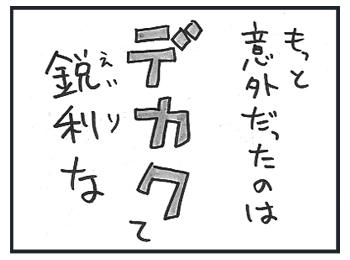 もっと
意外だったのは
デカクて
鋭利な
えいり